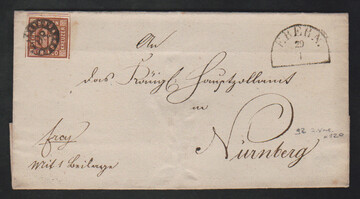 EBERN.
29
1
An
das Königl. Hauptzollamt
in
Nürnberg
frey
Mit 1 Beilage